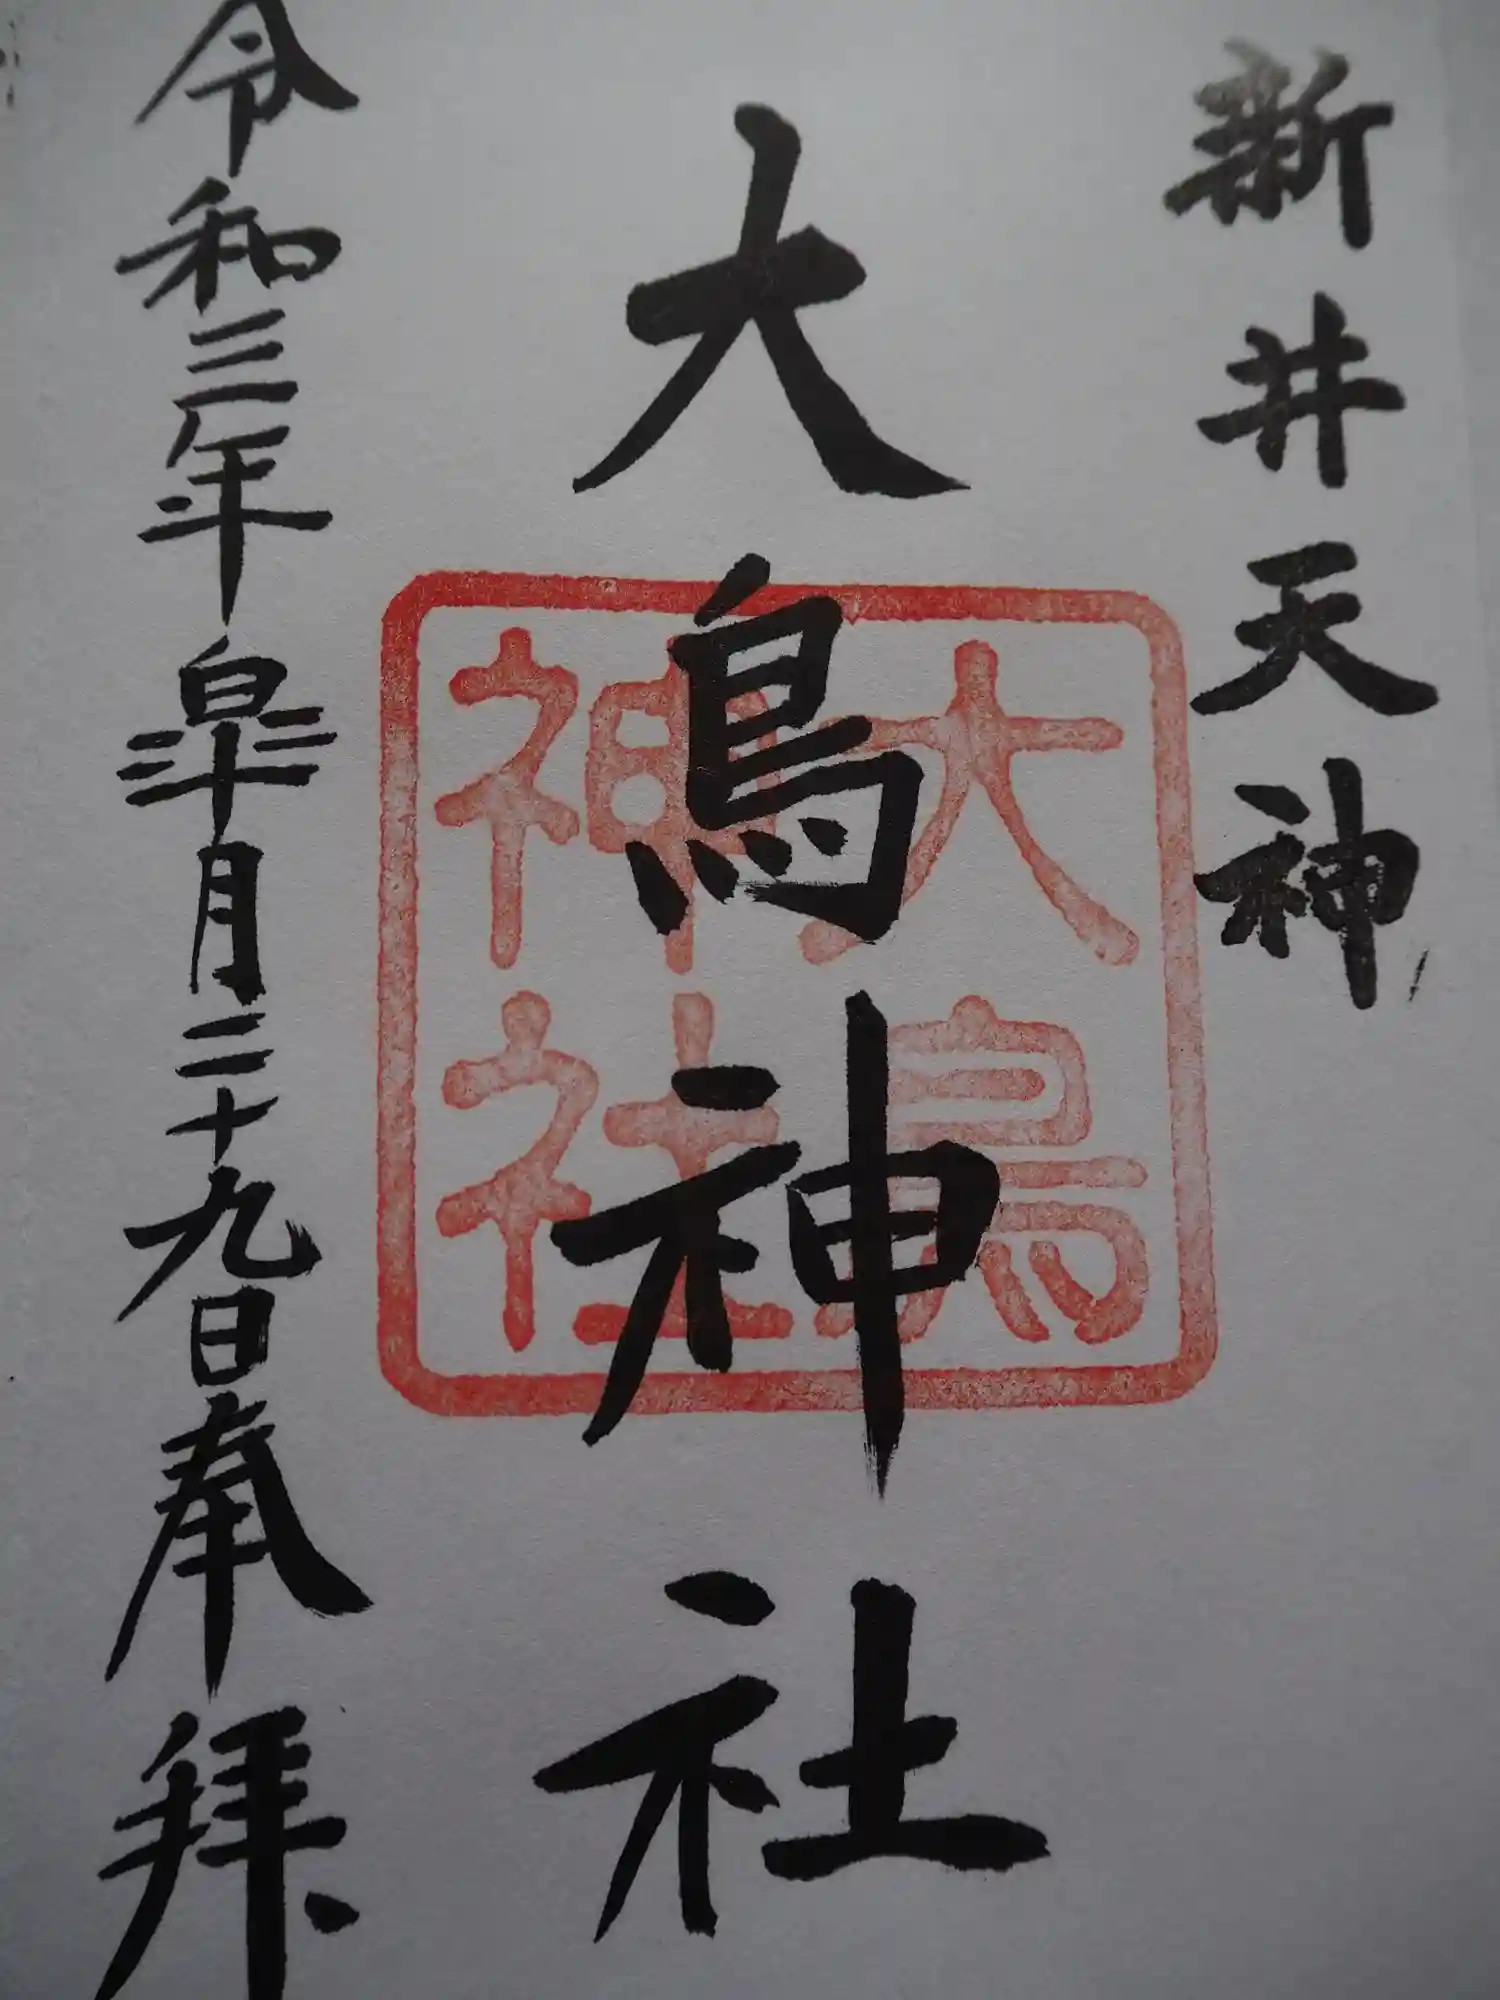 新井天神
大鳥神社
大鳥
神社
令和三年皐月二十九日奉拝